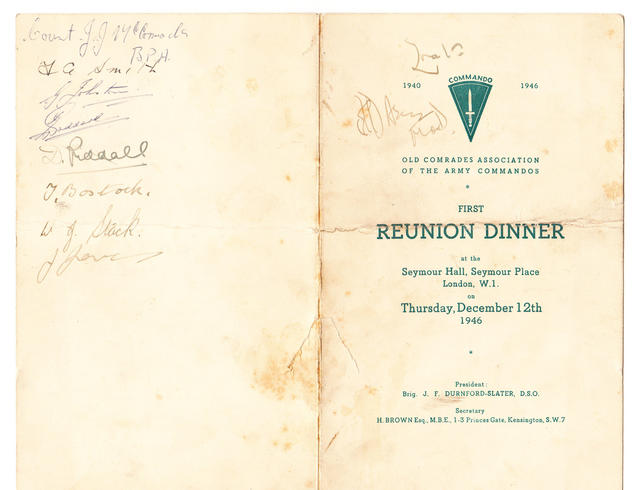 Count J.J
B.P.A.
F A Smith
Johnston
D. Riddall
T. Bostock.
W J. Slack.
J
COMMANDO
1940 1946
OLD COMRADES ASSOCIATION
OF THE ARMY COMMANDOS
FIRST
REUNION DINNER
at the
Seymour Hall, Seymour Place
London, W.1.
on
Thursday, December 12th
1946
President:
Brig. J. F. DURNFORD-SLATER, D.S.O.
Secretary
H. BROWN Esq., M.B.E., 1-3 Princes Gate, Kensington, S.W.7